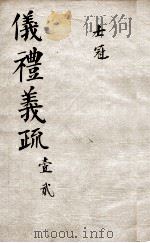 士冠
儀禮義疏 壹貳
mtoou.info